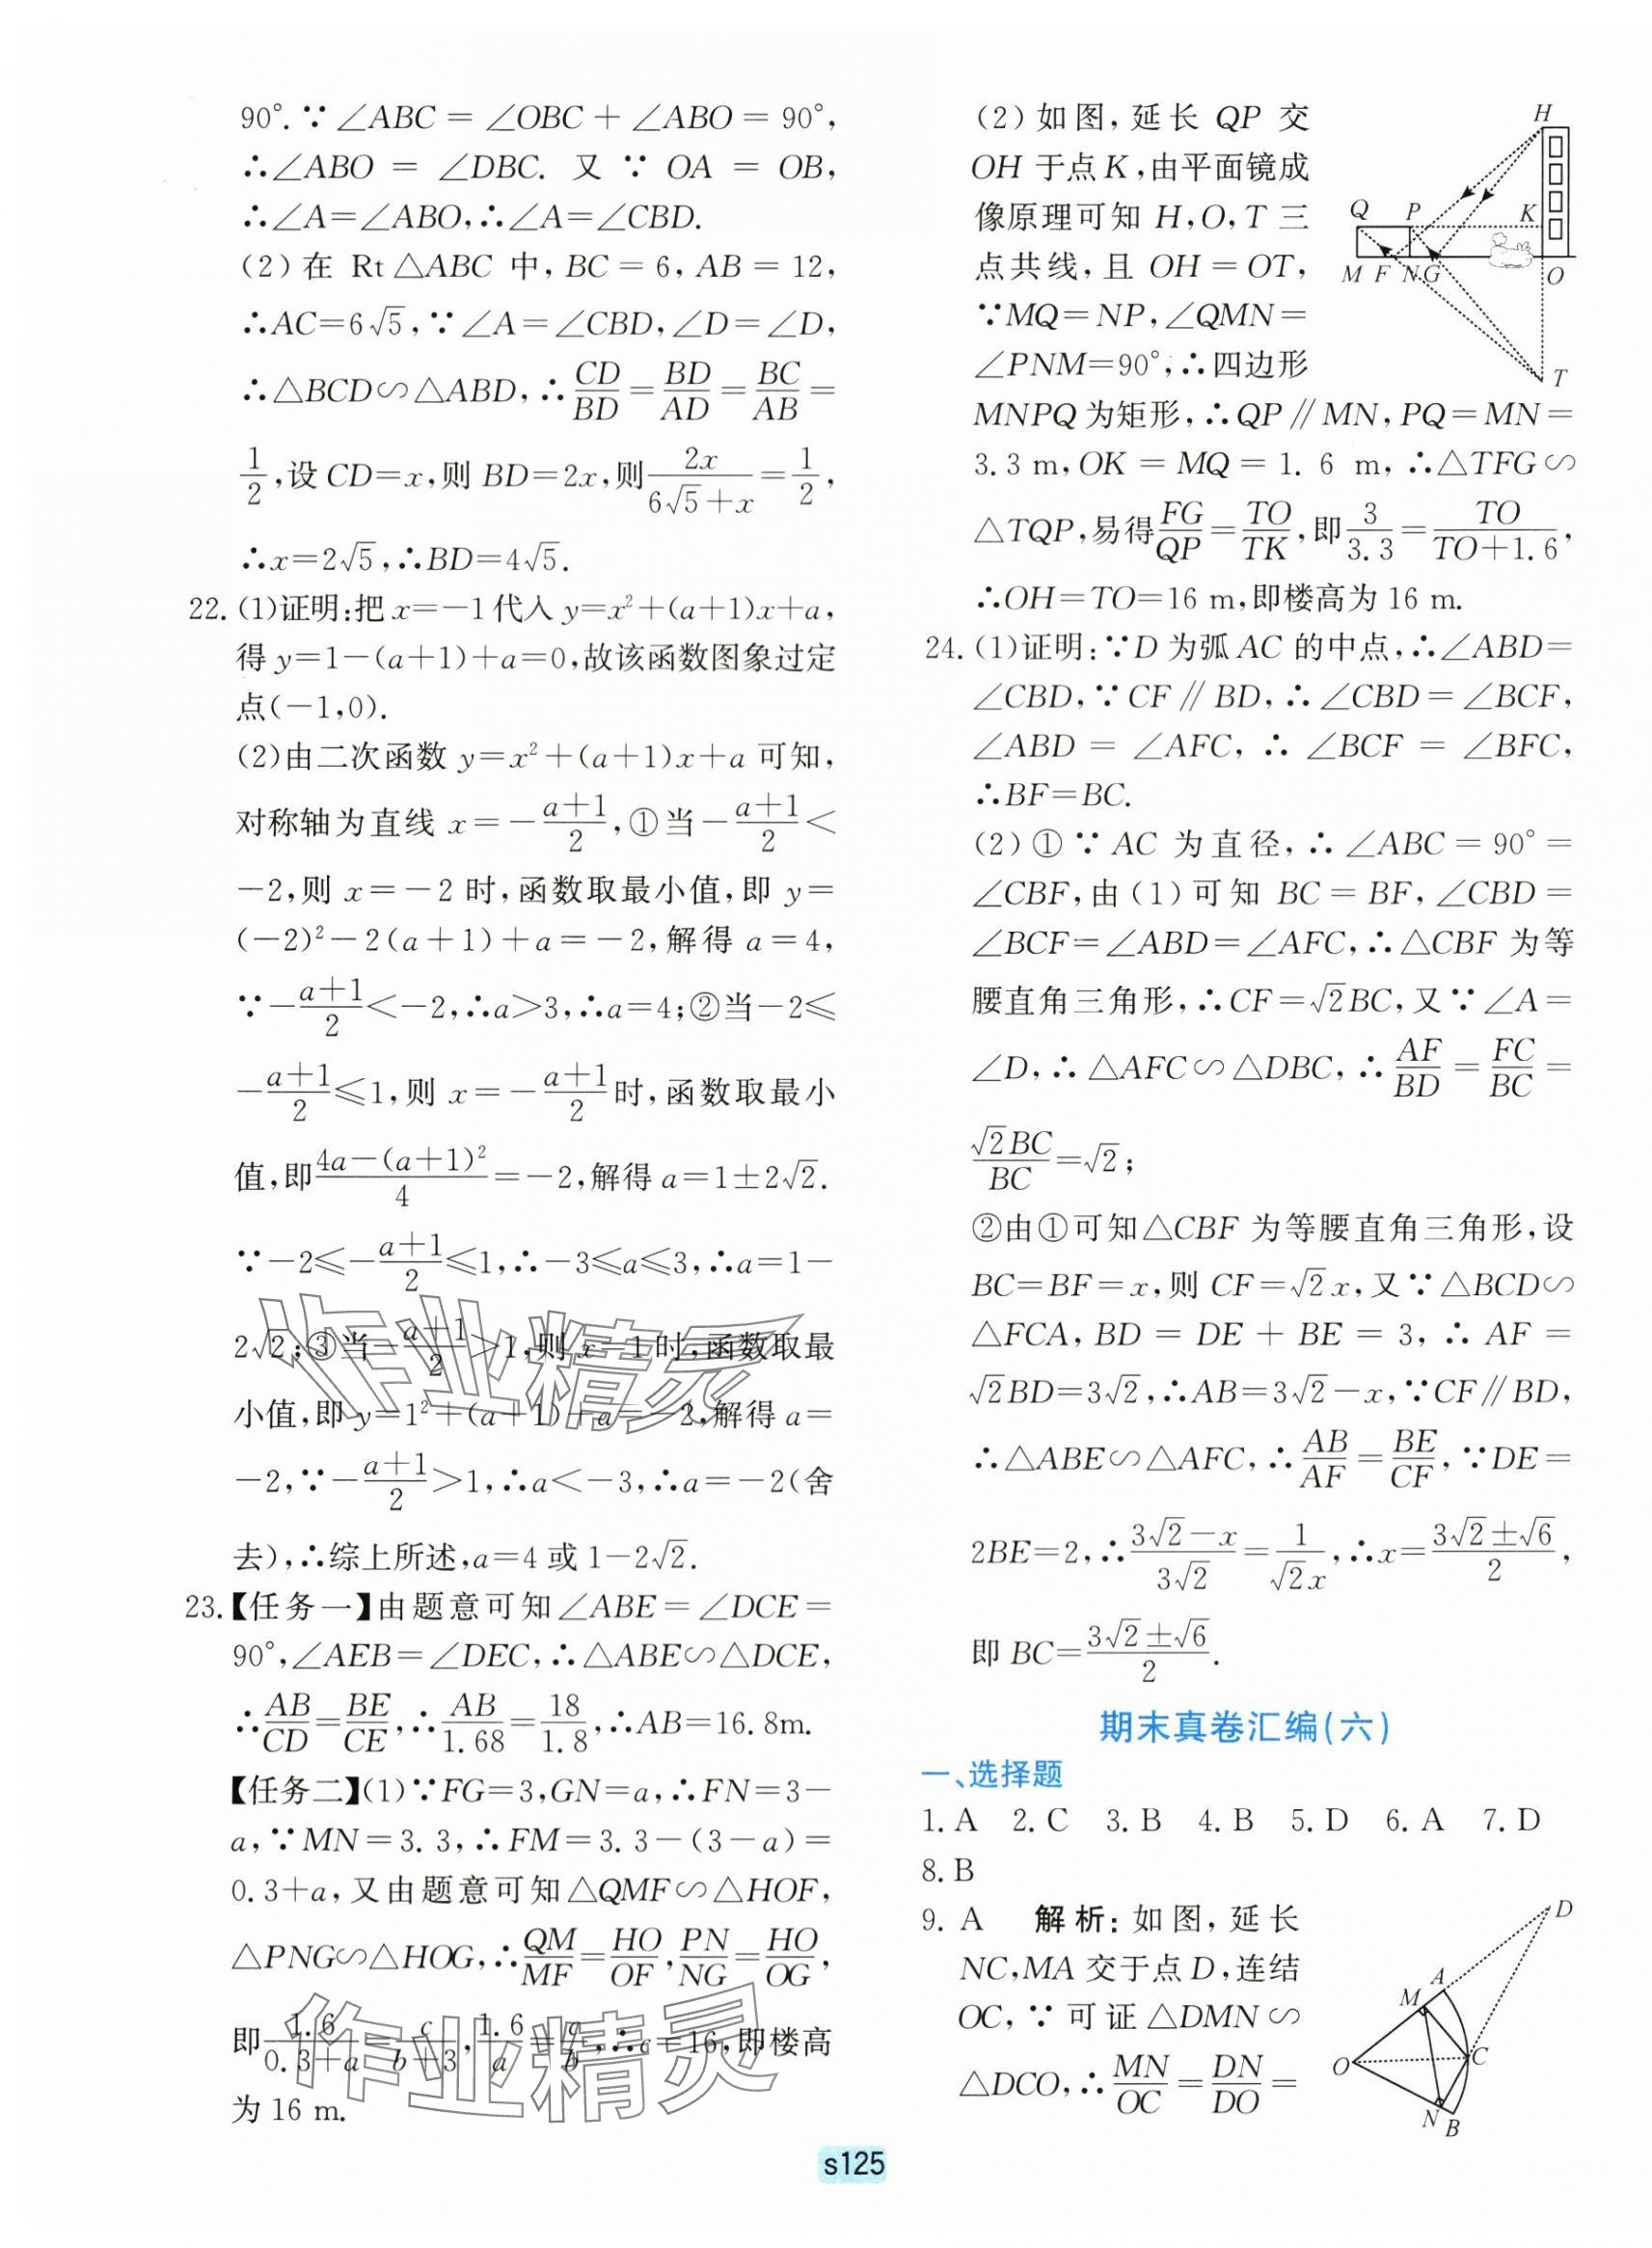 90°.∵∠ABC=∠OBC+∠ABO=90°,
∴∠ABO=∠DBC. 又∵OA=OB,
∴∠A=∠ABO,∴∠A=∠CBD.
(2)在 Rt△ABC 中,BC=6,AB=12,
∴AC=6√5,∵∠A=∠CBD,∠D=∠D,
∴△BCD∽△ABD,∴CD/BD=BD/AD=BC/AB=
1/2,设 CD=x,则 BD=2x,则2x/(6√5+x)=1/2,
∴x=2√5,∴BD=4√5.
22.(1)证明:把 x=-1代入 y=x²+(a+1)x+a,
得 y=1-(a+1)+a=0,故该函数图象过定
点(-1,0).
(2)由二次函数 y=x²+(a+1)x+a 可知,
对称轴为直线 x=-(a+1)/2,①当-(a+1)/2<
-2,则 x=-2 时,函数取最小值,即 y=
(-2)²-2(a+1)+a=-2,解得 a=4,
∵-(a+1)/2<-2,∴a>3,∴a=4;②当-2≤
-(a+1)/2≤1,则 x=-(a+1)/2时,函数取最小
值,即(4a-(a+1)²)/4=-2,解得 a=1±2√2.
∵-2≤-(a+1)/2≤1,∴-3≤a≤3,∴a=1-
2√2;③当-(a+1)/2>1,则 x=1时,函数取最
小值,即 y=1²+(a+1)+a=-2,解得 a=
-2,∵-(a+1)/2>1,∴a<-3,∴a=-2(舍
去),∴综上所述,a=4 或 1-2√2.
23.【任务一】由题意可知∠ABE=∠DCE=
90°,∠AEB=∠DEC,∴△ABE∽△DCE,
∴AB/CD=BE/CE,∴AB/1.68=18/1.8,∴AB=16.8m.
【任务二】(1)∵FG=3,GN=a,∴FN=3-
a,∵MN=3.3,∴FM=3.3-(3-a)=
0.3+a,又由题意可知△QMF∽△HOF,
△PNG∽△HOG,∴QM/MF=HO/OF,PN/NG=HO/OG,
即1.6/(0.3+a)=c/(b+3),1.6/a=c/b,∴c=16,即楼高
为 16 m.
(2)如图,延长 QP 交
OH 于点 K,由平面镜成
像原理可知 H,O,T 三
点共线,且 OH=OT,
∵MQ=NP,∠QMN=
∠PNM=90°,∴四边形
MNPQ 为矩形,∴QP∥MN,PQ=MN=
3.3 m,OK=MQ=1.6 m,∴△TFG∽
△TQP,易得FG/QP=TO/TK,即3/3.3=TO/(TO+1.6),
∴OH=TO=16 m,即楼高为 16 m.
H
Q P K
M F N G O
T
24.(1)证明:∵D 为弧 AC 的中点,∴∠ABD=
∠CBD,∵CF∥BD,∴∠CBD=∠BCF,
∠ABD=∠AFC,∴∠BCF=∠BFC,
∴BF=BC.
(2)①∵AC 为直径,∴∠ABC=90°=
∠CBF,由(1)可知 BC=BF,∠CBD=
∠BCF=∠ABD=∠AFC,∴△CBF 为等
腰直角三角形,∴CF=√2BC,又∵∠A=
∠D,∴△AFC∽△DBC,∴AF/BD=FC/BC=
√2BC/BC=√2;
②由①可知△CBF 为等腰直角三角形,设
BC=BF=x,则 CF=√2x,又∵△BCD∽
△FCA,BD=DE+BE=3,∴AF=
√2BD=3√2,∴AB=3√2-x,∵CF∥BD,
∴△ABE∽△AFC,∴AB/AF=BE/CF,∵DE=
2BE=2,∴(3√2-x)/3√2=1/√2x,∴x=(3√2±√6)/2,
即 BC=(3√2±√6)/2.
期末真卷汇编(六)
一、选择题
1.A 2.C 3.B 4.B 5.D 6.A 7.D
8.B
9.A 解析:如图,延长
NC,MA 交于点 D,连结
OC,∵可证△DMN∽
△DCO,∴MN/OC=DN/DO=
D
A
M
O C
N B
s125
作业精灵
作业精灵